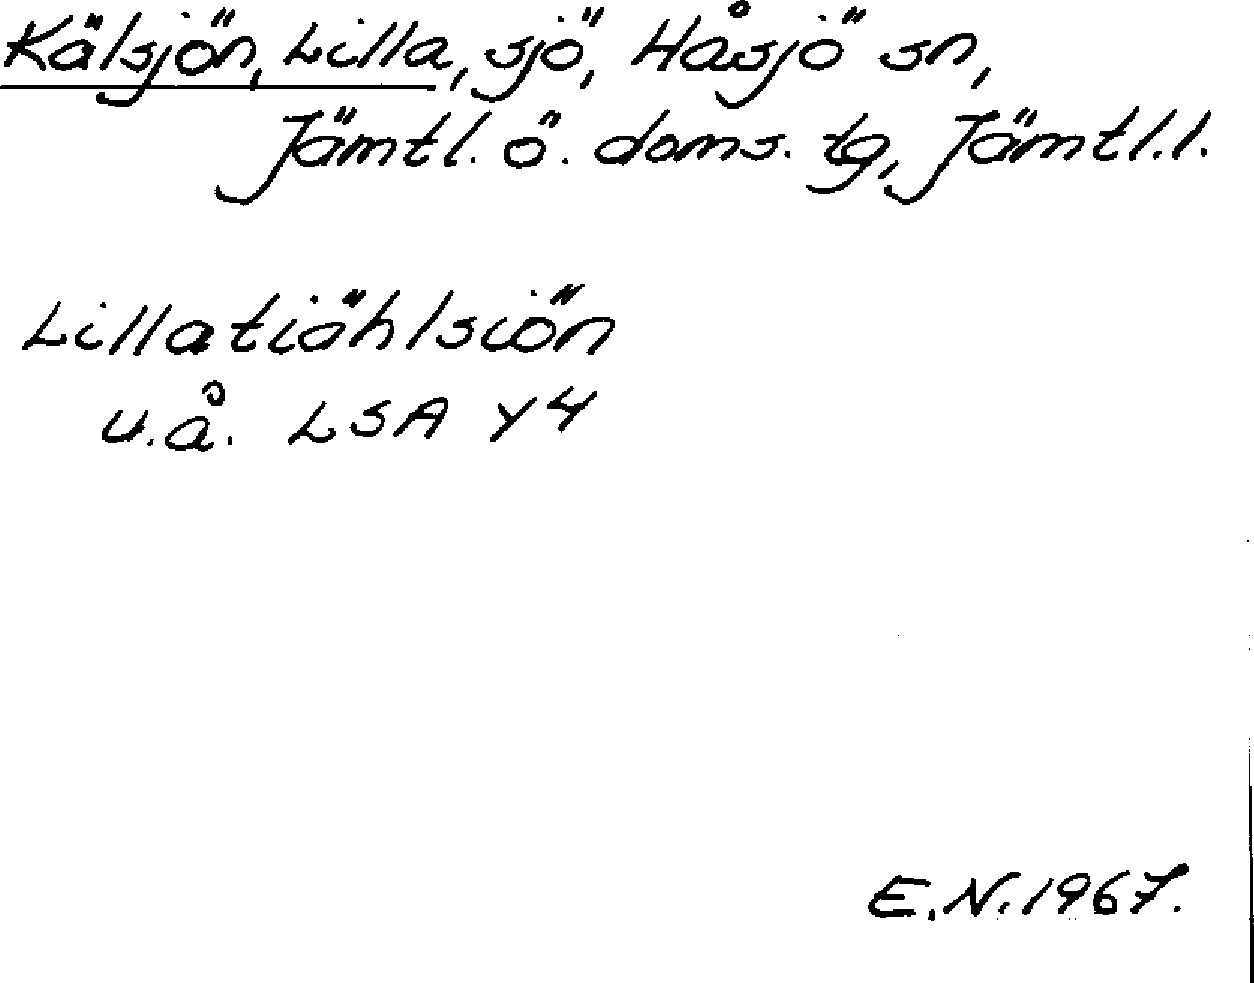 Kälsjön, Lilla, sjö, Håsjö sn,
Jämtl. ö. doms. tg, Jämtl.l.
Lillatiählsiön
u.å. LSA Y4
E.N. 1967.